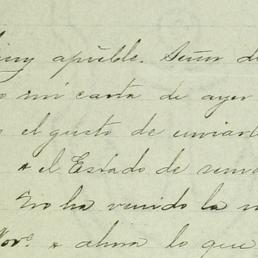 muy apĩble. Señor d
mi carta de ayer
el gusto de enviar
el Estado de
No ha venido la
Nov.º & ahora lo que